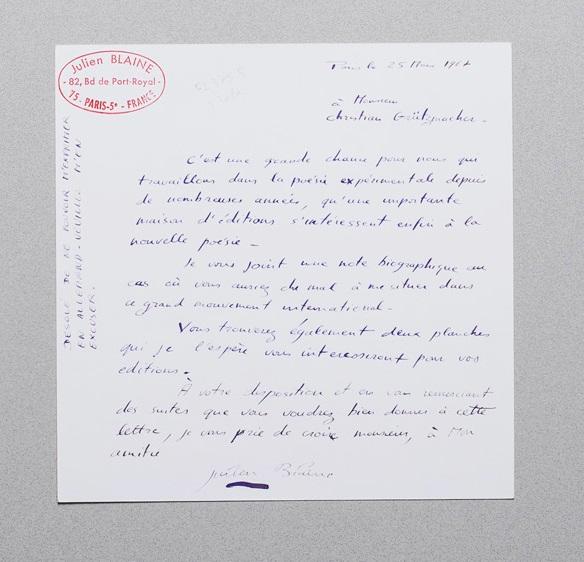 Julien BLAINE
- 82, Bd de Port-Royal -
75 - PARIS-5e - FRANCE
Paris le 25 Mars
à Monsieur
Christian Grützmacher -
DESOLE DE NE POUVOIR M'EXPRIMER
EN ALLEMAND - VEUILLEZ M'EN
EXCUSER.
C'est une grande chance pour nous qui
travaillons dans la poésie expérimentale depuis
de nombreuses années, qu'une importante
maison d'éditions s'intéressent enfin à la
nouvelle poésie -
Je vous joint une note biographique au
cas où vous auriez du mal à me situer dans
ce grand mouvement international -
Vous trouverez également deux planches
qui je l'espère vous intéresseront pour vos
editions.
À votre disposition et en vous remerciant
des suites que vous voudrez bien donner à cette
lettre, je vous prie de croire monsieur, à mon
amitié
Julien Blaine